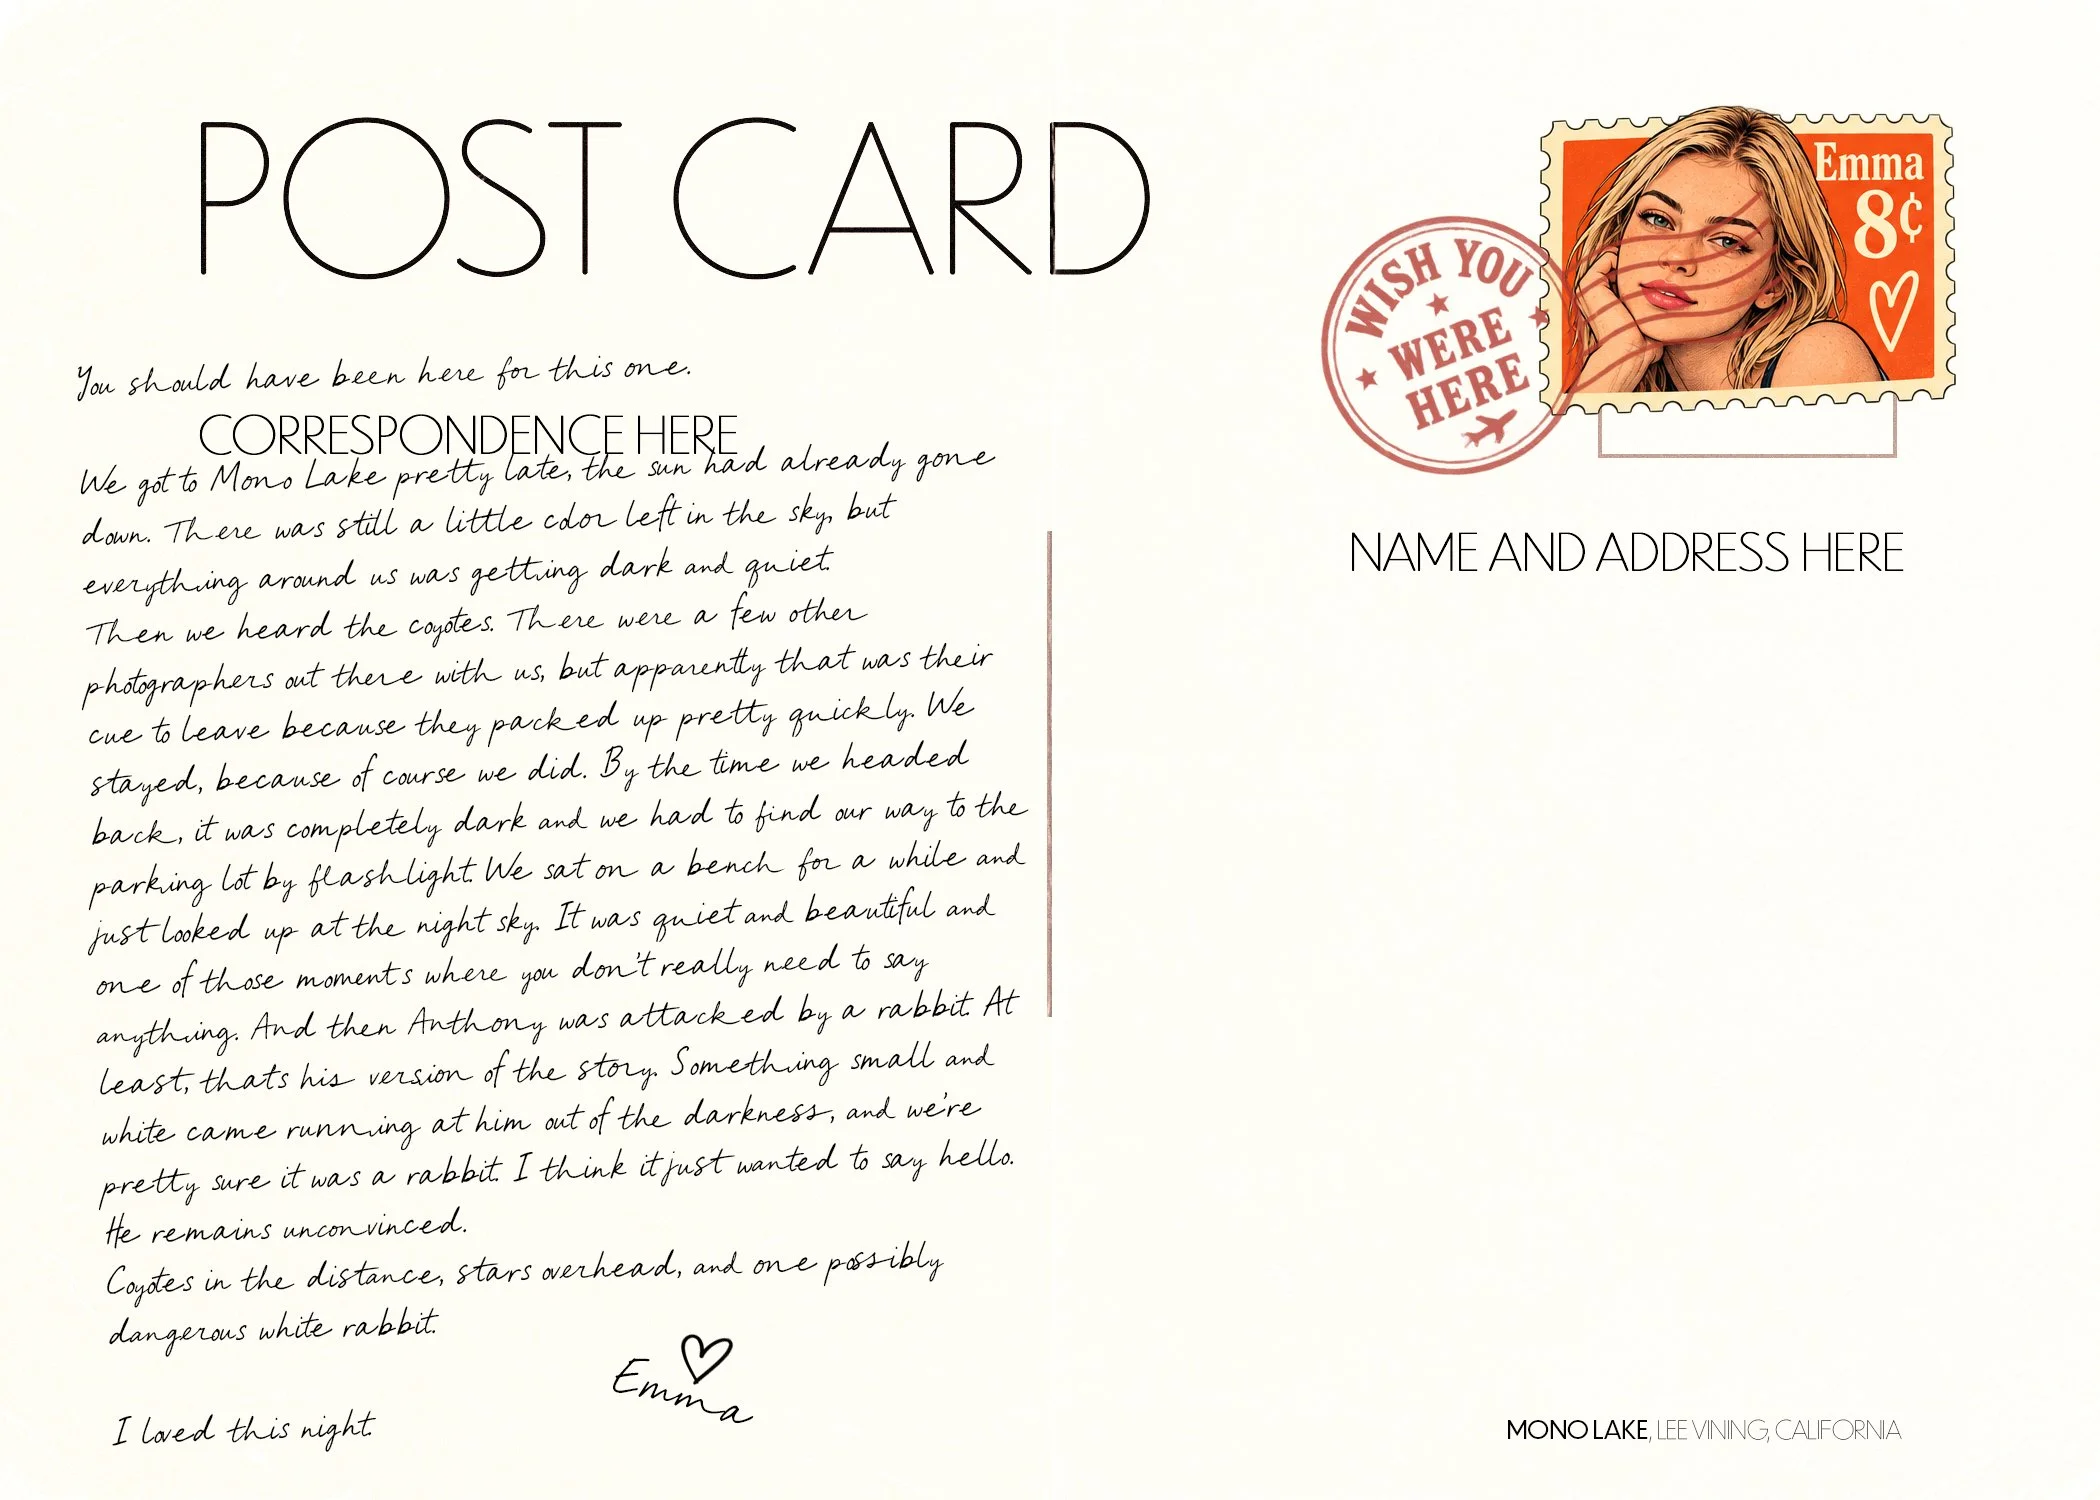 POST CARD
Emma
8¢
WISH YOU
WERE
HERE
You should have been here for this one.
CORRESPONDENCE HERE
We got to Mono Lake pretty late, the sun had already gone
down. There was still a little color left in the sky, but
everything around us was getting dark and quiet.
Then we heard the coyotes. There were a few other
photographers out there with us, but apparently that was their
cue to leave because they packed up pretty quickly. We
stayed, because of course we did. By the time we headed
back, it was completely dark and we had to find our way to the
parking lot by flashlight. We sat on a bench for a while and
just looked up at the night sky. It was quiet and beautiful and
one of those moments where you don't really need to say
anything. And then Anthony was attacked by a rabbit. At
least, thats his version of the story. Something small and
white came running at him out of the darkness, and we're
pretty sure it was a rabbit. I think it just wanted to say hello.
He remains unconvinced.
Coyotes in the distance, stars overhead, and one possibly
dangerous white rabbit.
Emma
I loved this night.
NAME AND ADDRESS HERE
MONO LAKE, LEE VINING, CALIFORNIA